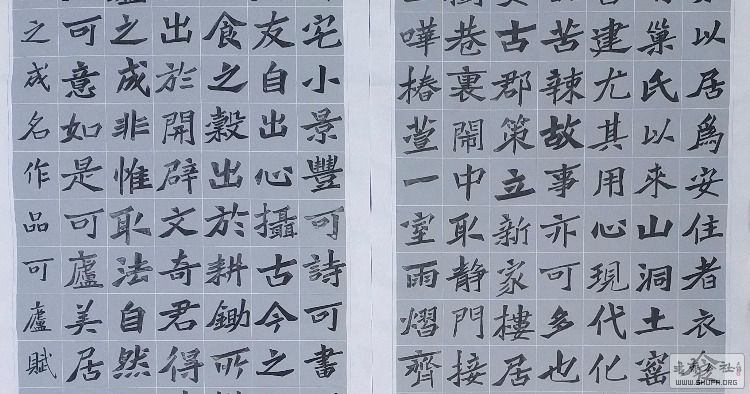 以居為安住者衣
巢氏以來山洞土窰
建尤其用心現代化
苦辣故事亦可多也
古郡策立新家樓居
巷裏鬧中取静門接
嘩椿萱一室雨熠齊
宅小景豐可詩可畫
友自出心攝古今之
食之穀出於耕鋤所
出於開辟文奇君得
之成非惟取法自然
可意如是可廬美居
之成名作品可廬賦
WWW.SHUFA.ORG